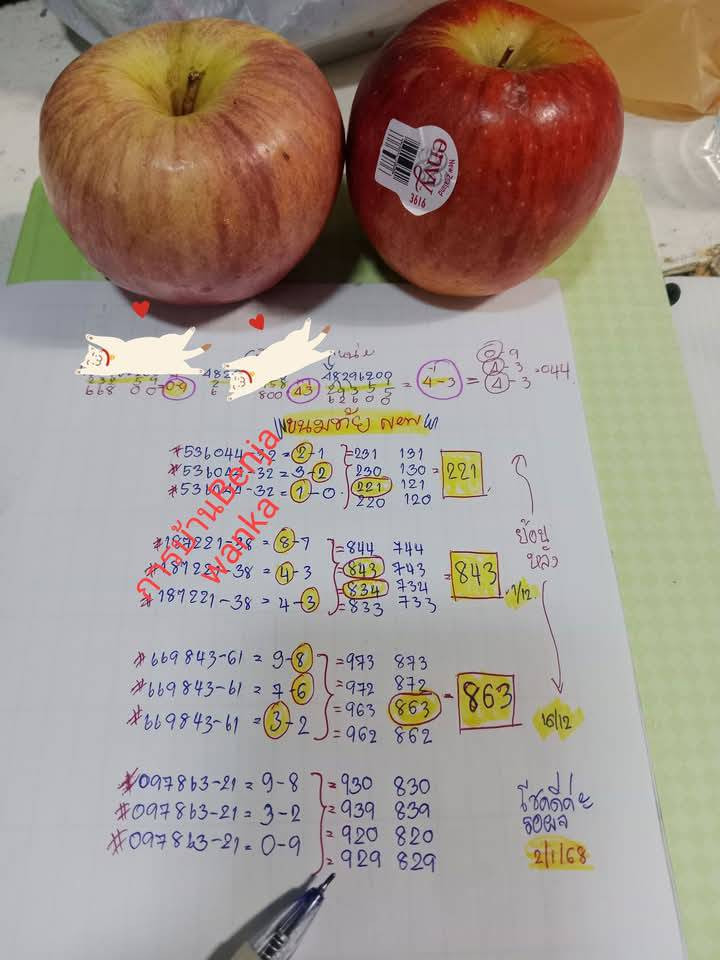 New Zealand
envy
3616
48296200
668 00 0-9 800 43 62600 = 4-3 = 0-9
4-3 = 044
4-3
ขนมทัย New
#536044-32 = 2-1 = 231 131
#536044-32 = 3-2 = 230 130 = 221
#536044-32 = 1-0 221 121
220 120
ย้อน
หลัง
#187221-38 = 8-7 = 844 744
#187221-38 = 4-3 = 843 743 = 843
#187221-38 = 4-3 = 834 734
= 833 733
1/12
การบ้านBenja
wanka
#669843-61 = 9-8 = 973 873
#669843-61 = 7-6 = 972 872 = 863
#669843-61 = 3-2 = 963 863
= 962 862
16/12
#097863-21 = 9-8 = 930 830
#097863-21 = 3-2 = 939 839
#097863-21 = 0-9 = 920 820
= 929 829
โชคดีค่ะ
รอผล
2/1/68